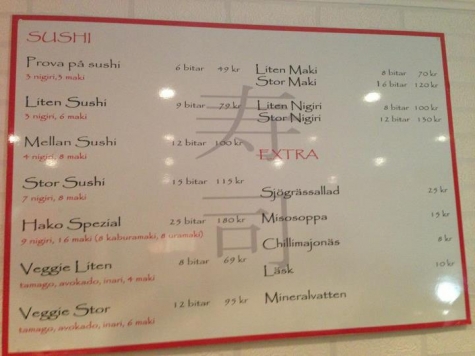 SUSHI
Prova på sushi 6 bitar 49 kr
3 nigiri, 3 maki
Liten Sushi 9 bitar 79 kr
3 nigiri, 6 maki
Mellan Sushi 12 bitar 100 kr
4 nigiri, 8 maki
Stor Sushi 15 bitar 115 kr
7 nigiri, 8 maki
Hako Spezial 25 bitar 180 kr
9 nigiri, 16 maki (8 kaburamaki, 8 uramaki)
Veggie Liten 8 bitar 69 kr
tamago, avokado, inari, 4 maki
Veggie Stor 12 bitar 95 kr
tamago, avokado, inari, 6 maki
寿司
Liten Maki 8 bitar 70 kr
Stor Maki 16 bitar 120 kr
Liten Nigiri 8 bitar 100 kr
Stor Nigiri 12 bitar 130 kr
EXTRA
Sjögrässallad 25 kr
Misosoppa 15 kr
Chillimajonäs 8 kr
Läsk 10 kr
Mineralvatten